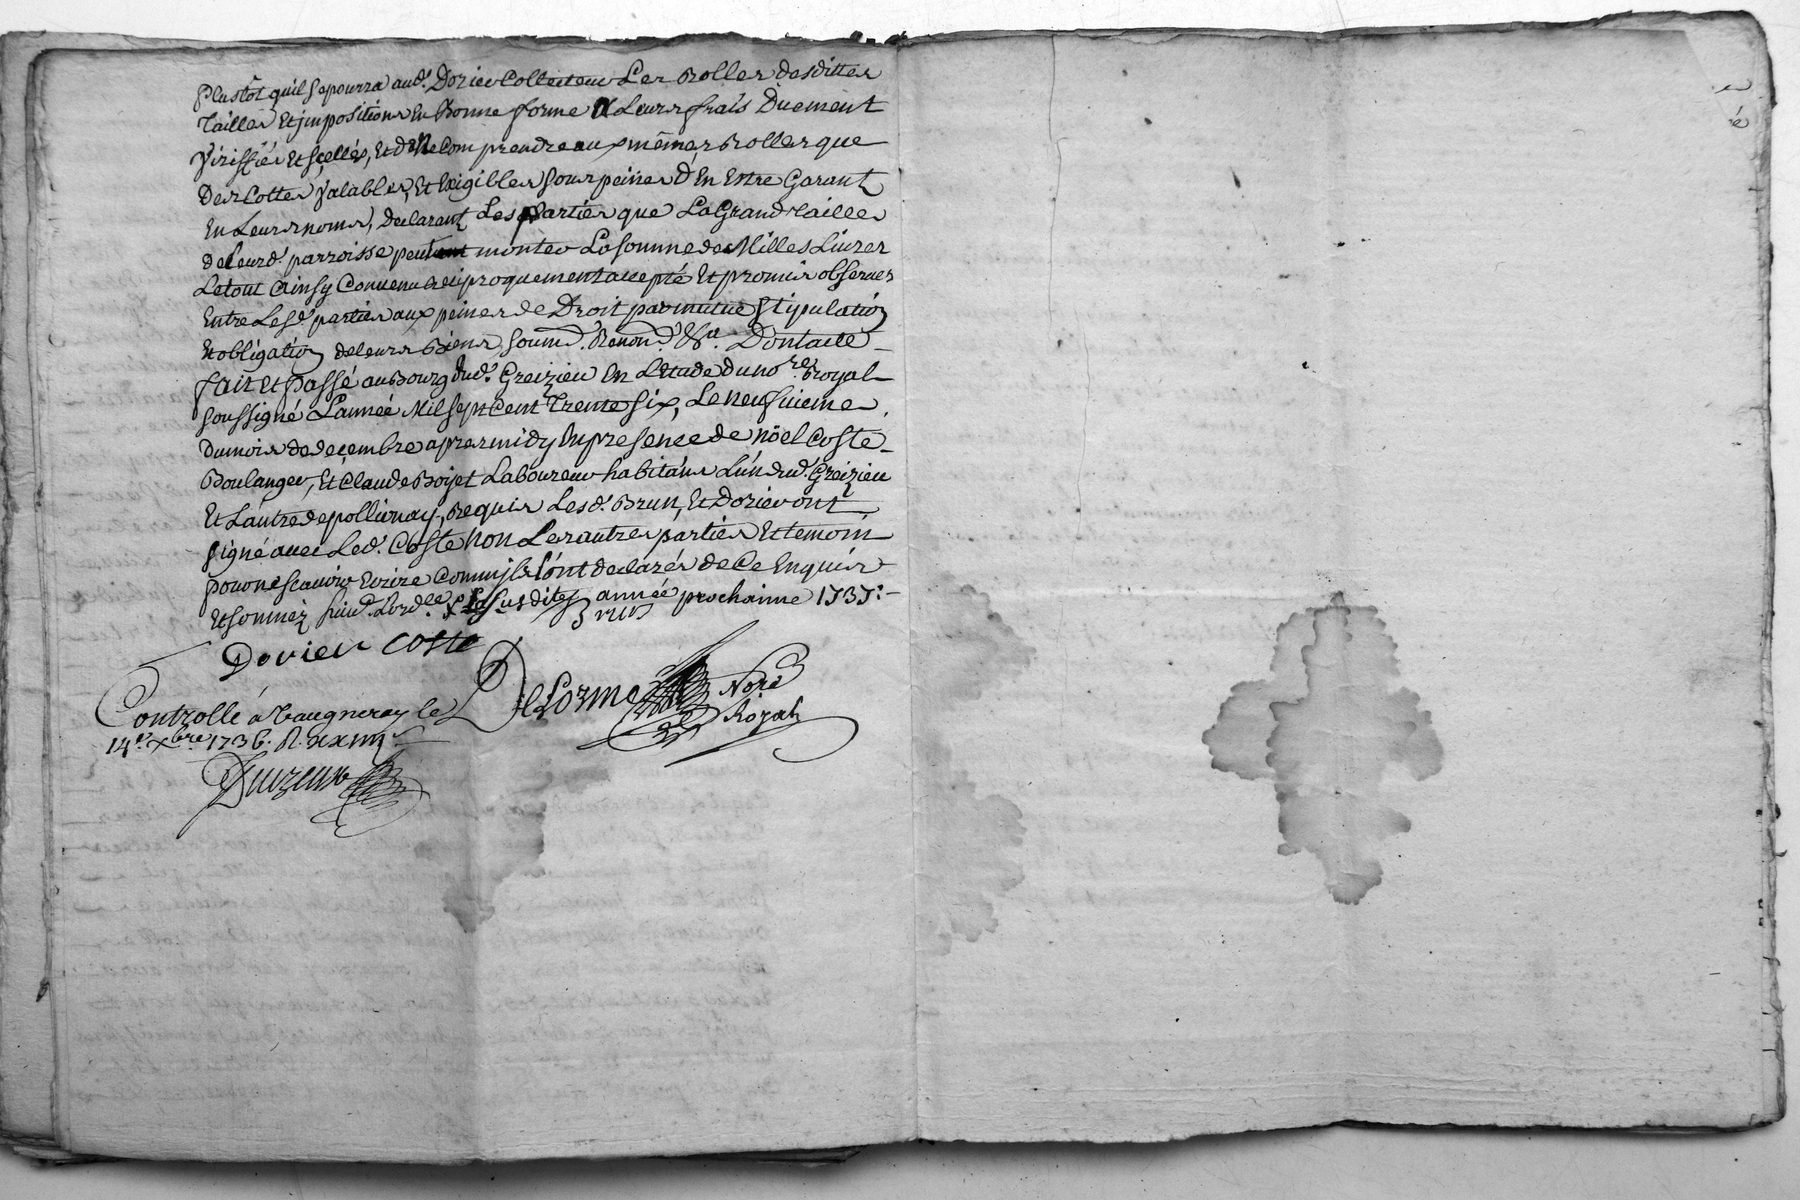 plustot quil se pourra aud. Dorier Collecteur Les Rolles desdittes
Tailles Et impositions En Bonne forme A Leurs frais Duement
Viriffiés Et sçellés, Et de Ne Comprendre aux mêmes Rolles que
Des Cottes Valables, Et Exigibles sous peines D'En Estre Garant
En Leurs noms, declarant Les parties que La Grand Taille
de leurd. parroisse peut monter La somme de Milles Livres
Le tout Ainsy Convenu reciproquement accepté Et promis observer
Entre Lesd. parties aux peines de Droit par mutue Stipulation
Et obligation de leurs Biens, soumd. Renond. &a. Dont acte
fait Et passé au Bourg dud. Greizieu En L'Etude du nore. Royal
soussigné L'année Mil sept Cent Trente Six, Le neufvieme
du mois de deçembre apres midy En presence de Nöel Coste
Boulanger, Et Claude Boyet Laboureur habitans L'un dud. Greizieu
Et L'autre de pollionay, Requis Lesd. Brun, Et Dorier ont
signé avec Led. Coste non Les autres parties Et temoin
pour ne scavoir Ecrire Comm'ils L'ont declarés de Ce Enquis
Et sommez suivt. Lordce. Lesusdite année prochaine 1737:
Brun
Dorier Coste
DeLorme Nore
Royal
Controllé à Vaugneray le
14e. Xbre 1736. R. xxiiij s